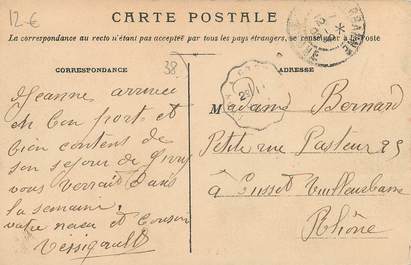 12 €
CARTE POSTALE
La correspondance au recto n'étant pas acceptée par tous les pays étrangers, se renseigner à la Poste
CORRESPONDANCE
38
ADRESSE
Jeanne arrivée
en bon port et
bien contens de
son séjour de Givry
vous verrait dans
la semaine.
votre neveu et cousin
Madame Bernard
Petite rue Pasteur 25
à Cusset Villeurbanne
Rhône